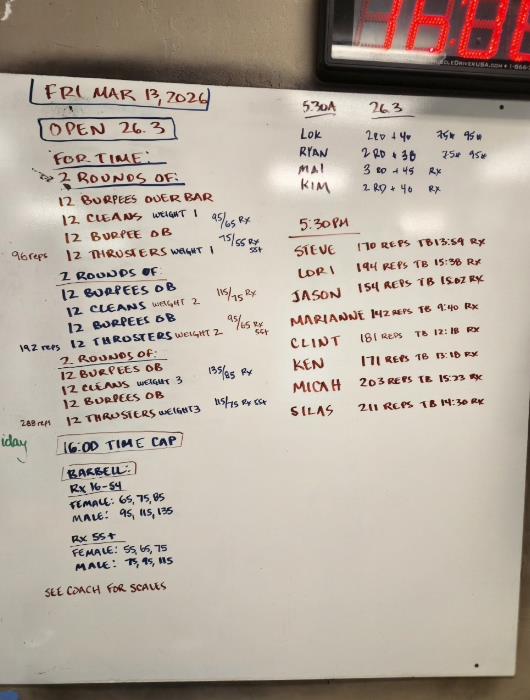 FRI MAR 13, 2026
OPEN 26.3
FOR TIME:
2 ROUNDS OF:
12 BURPEES OVER BAR
12 CLEANS WEIGHT 1 95/65 RX
12 BURPEE OB
75/55 RX 55+
96 reps 12 THRUSTERS WEIGHT 1
2 ROUNDS OF:
12 BURPEES OB
12 CLEANS WEIGHT 2 115/75 RX
12 BURPEES OB
95/65 RX 55+
192 reps 12 THRUSTERS WEIGHT 2
2 ROUNDS OF:
12 BURPEES OB
12 CLEANS WEIGHT 3 135/85 RX
12 BURPEES OB
288 reps 12 THRUSTERS WEIGHT 3 115/75 RX 55+
iday
16:00 TIME CAP
BARBELL:
RX 16-54
FEMALE: 65, 75, 85
MALE: 95, 115, 135
RX 55+
FEMALE: 55, 65, 75
MALE: 75, 95, 115
SEE COACH FOR SCALES
5:30A 26.3
LOK 2RD + 40 75# 95#
RYAN 2 RD + 38 75# 95#
MAI 3 RD + 45 RX
KIM 2 RD + 40 RX
5:30PM
STEVE 170 REPS TB 13:59 RX
LORI 194 REPS TB 15:38 RX
JASON 154 REPS TB 15:02 RX
MARIANNE 142 REPS TB 9:40 RX
CLINT 181 REPS TB 12:18 RX
KEN 171 REPS TB 13:18 RX
MICAH 203 REPS TB 15:23 RX
SILAS 211 REPS TB 14:30 RX